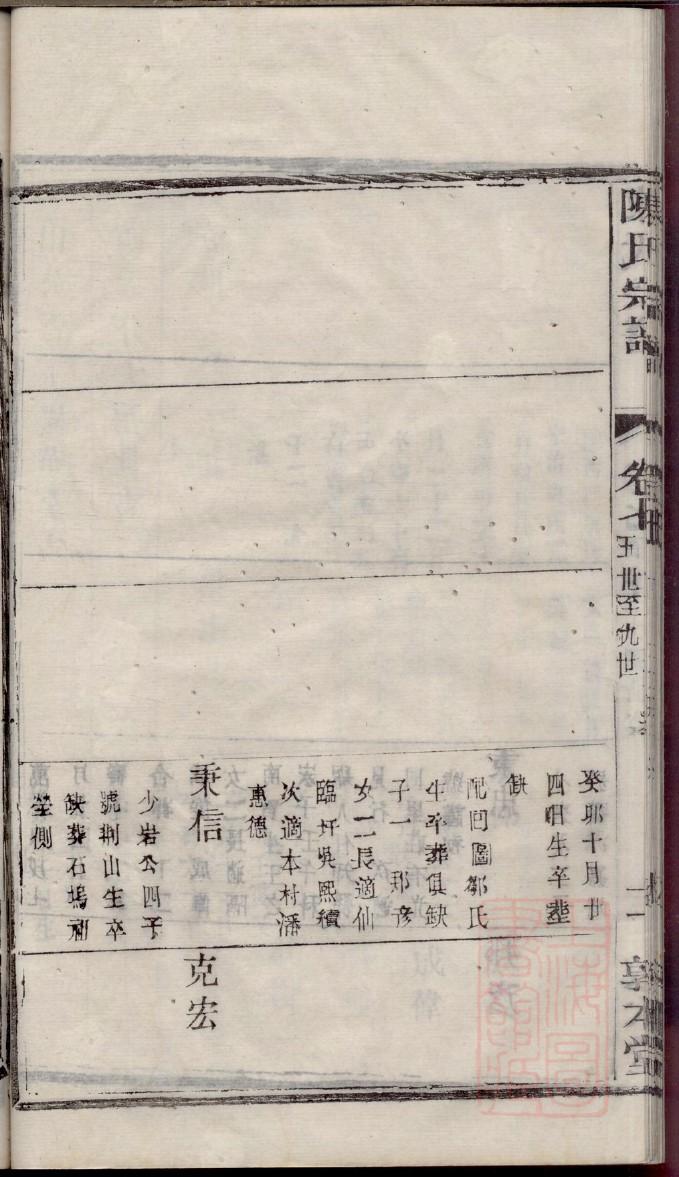 陳氏宗譜
卷七
五世至九世
十一
敦本堂
癸卯十月廿
四日生卒塟
缺
配同圖鄒氏
生卒葬俱缺
子一 邦彦
女二長適仙
臨圩吳熙績
次適本村潘
惠德
秉信
少岩公四子
號荆山生卒
缺葬石塢祖
塋側
克宏